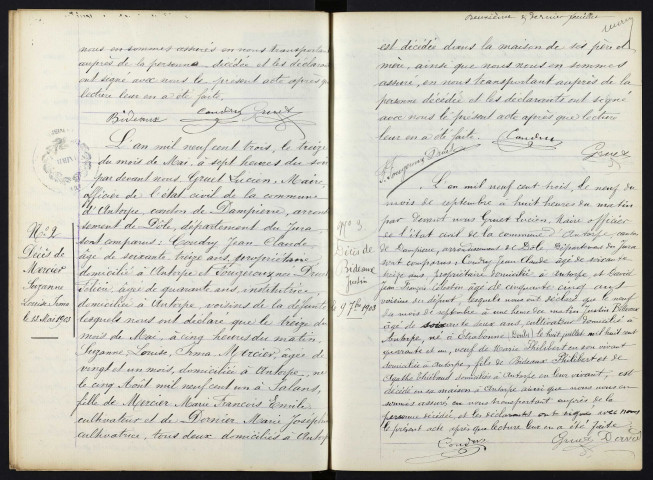 nous en sommes assurés en nous transportant
auprès de la personne décédée et les déclarants
ont signé avec nous le présent acte après que
lecture leur en a été faite.
Bideaux Coudry Gruet
L'an mil neuf cent trois, le treize
du mois de Mai, à sept heures du soir
par devant nous, Gruet Lucien, Maire,
officier de l'état civil de la commune
d'Antorpe, canton de Dampierre, arron-
dissement de Dôle, département du Jura
sont comparus: Coudry Jean Claude,
âgé de soixante treize ans, propriétaire,
domicilié à Antorpe et
âgé de quarante ans, institutrice,
domiciliée à Antorpe, voisins de la défunte,
lesquels nous ont déclaré que le treize du
mois de Mai, à cinq heures du matin,
Suzanne Louise Irma Mercier, âgée de
vingt et un mois, domiciliée à Antorpe, née
le cinq Août mil neuf cent un à Salans,
fille de Mercier Marie François Emile
cultivateur et de Dornier Marie Joséphine
cultivatrice, tous deux domiciliés à Antorpe
N° 2
Décès de
Mercier
Suzanne
Louise Irma
le 13 Mai 1903
Deuxième et dernier feuillet
est décédée dans la maison de ses père et
mère, ainsi que nous nous en sommes
assuré, en nous transportant auprès de la
personne décédée et les déclarants ont signé
avec nous le présent acte après que lecture
leur en a été faite. Coudry
Gruet
N° 3
Décès de
Bideaux
Justin
le 9 7bre 1903
L'an mil neuf cent trois, le neuf du
mois de septembre à huit heures du matin
par devant nous Gruet Lucien, Maire officier
de l'état civil de la commune d'Antorpe, canton
de Dampierre, arrondissement de Dôle Département du Jura
sont comparus: Coudry Jean Claude âgé de soixante
treize ans, propriétaire domicilié à Antorpe et David
âgé de cinquante cinq ans
voisins du défunt, lesquels nous ont déclaré que le neuf
du mois de septembre à une heure du matin Justin Bideaux
âgé de soixante deux ans, cultivateur domicilié à
Antorpe, né à (Doubs) le huit juillet mil huit cent
quarante et un, veuf de Marie Philibert en son vivant
domiciliée à Antorpe, fils de Bideaux Philibert et de
Agathe domiciliés à Antorpe en leur vivant, est
décédé en sa maison à Antorpe ainsi que nous nous en
sommes assuré, en nous transportant auprès de la
personne décédée, et les déclarants ont signé avec nous
le présent acte après que lecture leur en a été faite.
Coudry Gruet David